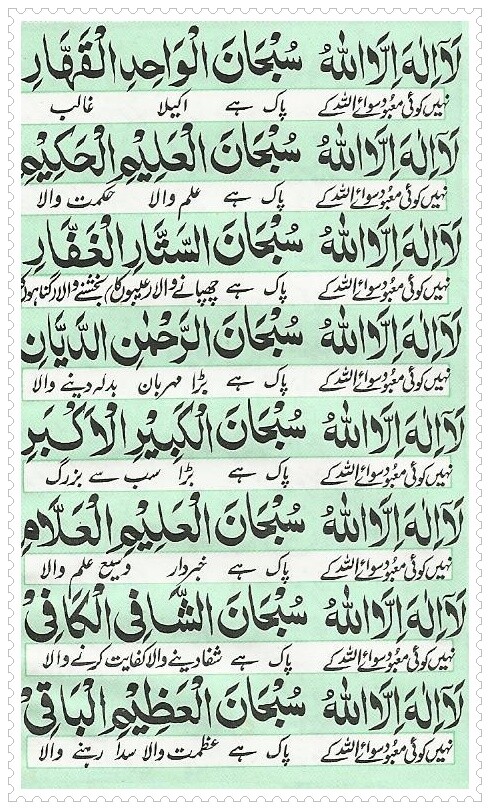 لَآ اِلٰهَ اِلَّا اللّٰهُ سُبْحَانَ الْوَاحِدِ الْقَهَّارِ
نہیں کوئی معبود سوائے اللہ کے پاک ہے اکیلا غالب
لَآ اِلٰهَ اِلَّا اللّٰهُ سُبْحَانَ الْعَلِيْمِ الْحَكِيْمِ
نہیں کوئی معبود سوائے اللہ کے پاک ہے علم والا حکمت والا
لَآ اِلٰهَ اِلَّا اللّٰهُ سُبْحَانَ السَّتَّارِ الْغَفَّارِ
نہیں کوئی معبود سوائے اللہ کے پاک ہے چھپانے والا (عیبوں کا) بخشنے والا
لَآ اِلٰهَ اِلَّا اللّٰهُ سُبْحَانَ الرَّحْمٰنِ الدَّيَّانِ
نہیں کوئی معبود سوائے اللہ کے پاک ہے بڑا مہربان بدلہ دینے والا
لَآ اِلٰهَ اِلَّا اللّٰهُ سُبْحَانَ الْكَبِيْرِ الْاَكْبَرِ
نہیں کوئی معبود سوائے اللہ کے پاک ہے بڑا سب سے بزرگ
لَآ اِلٰهَ اِلَّا اللّٰهُ سُبْحَانَ الْعَلِيْمِ الْعَلَّامِ
نہیں کوئی معبود سوائے اللہ کے پاک ہے خبردار وسیع علم والا
لَآ اِلٰهَ اِلَّا اللّٰهُ سُبْحَانَ الشَّافِى الْكَافِىْ
نہیں کوئی معبود سوائے اللہ کے پاک ہے شفا دینے والا کفایت کرنے والا
لَآ اِلٰهَ اِلَّا اللّٰهُ سُبْحَانَ الْعَظِيْمِ الْبَاقِىْ
نہیں کوئی معبود سوائے اللہ کے پاک ہے عظمت والا سدا رہنے والا